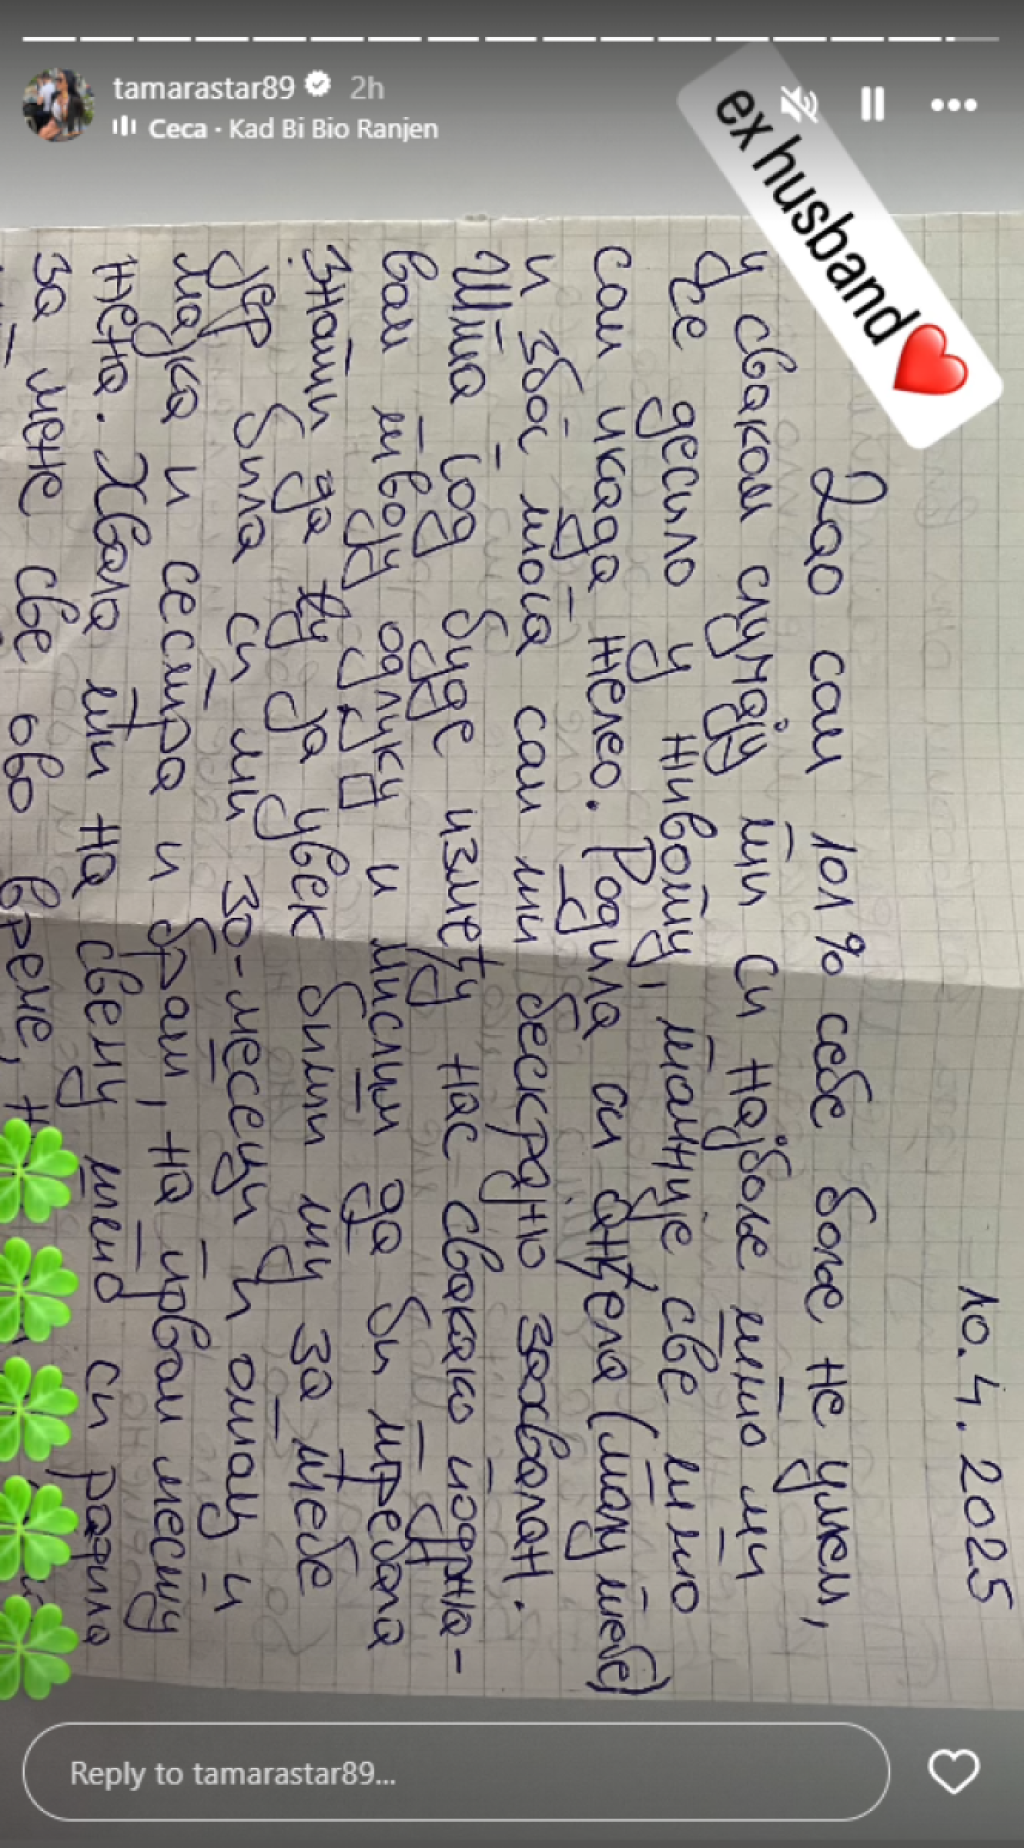 tamarastar89 2h
Ceca · Kad Bi Bio Ranjen
ex husband❤️
10.4.2025
Дао сам 101% себе боље не умем,
у сваком случају ти си најбоље што ми
се десило у животу, тачније све што
сам икада желео. Родила си анђела (малу тебе)
и због тога сам ти бескрајно захвалан.
Шта год буде између нас свакако подржа-
вам твоју одлуку и мислим да би требала
знати да ћу ја увек бити ту за тебе
јер била си ми 30-месеци и отац и
мајка и сестра и брат, на првом месту
жена. Хвала ти на свему што си радила
за мене све ово време,
Reply to tamarastar89...